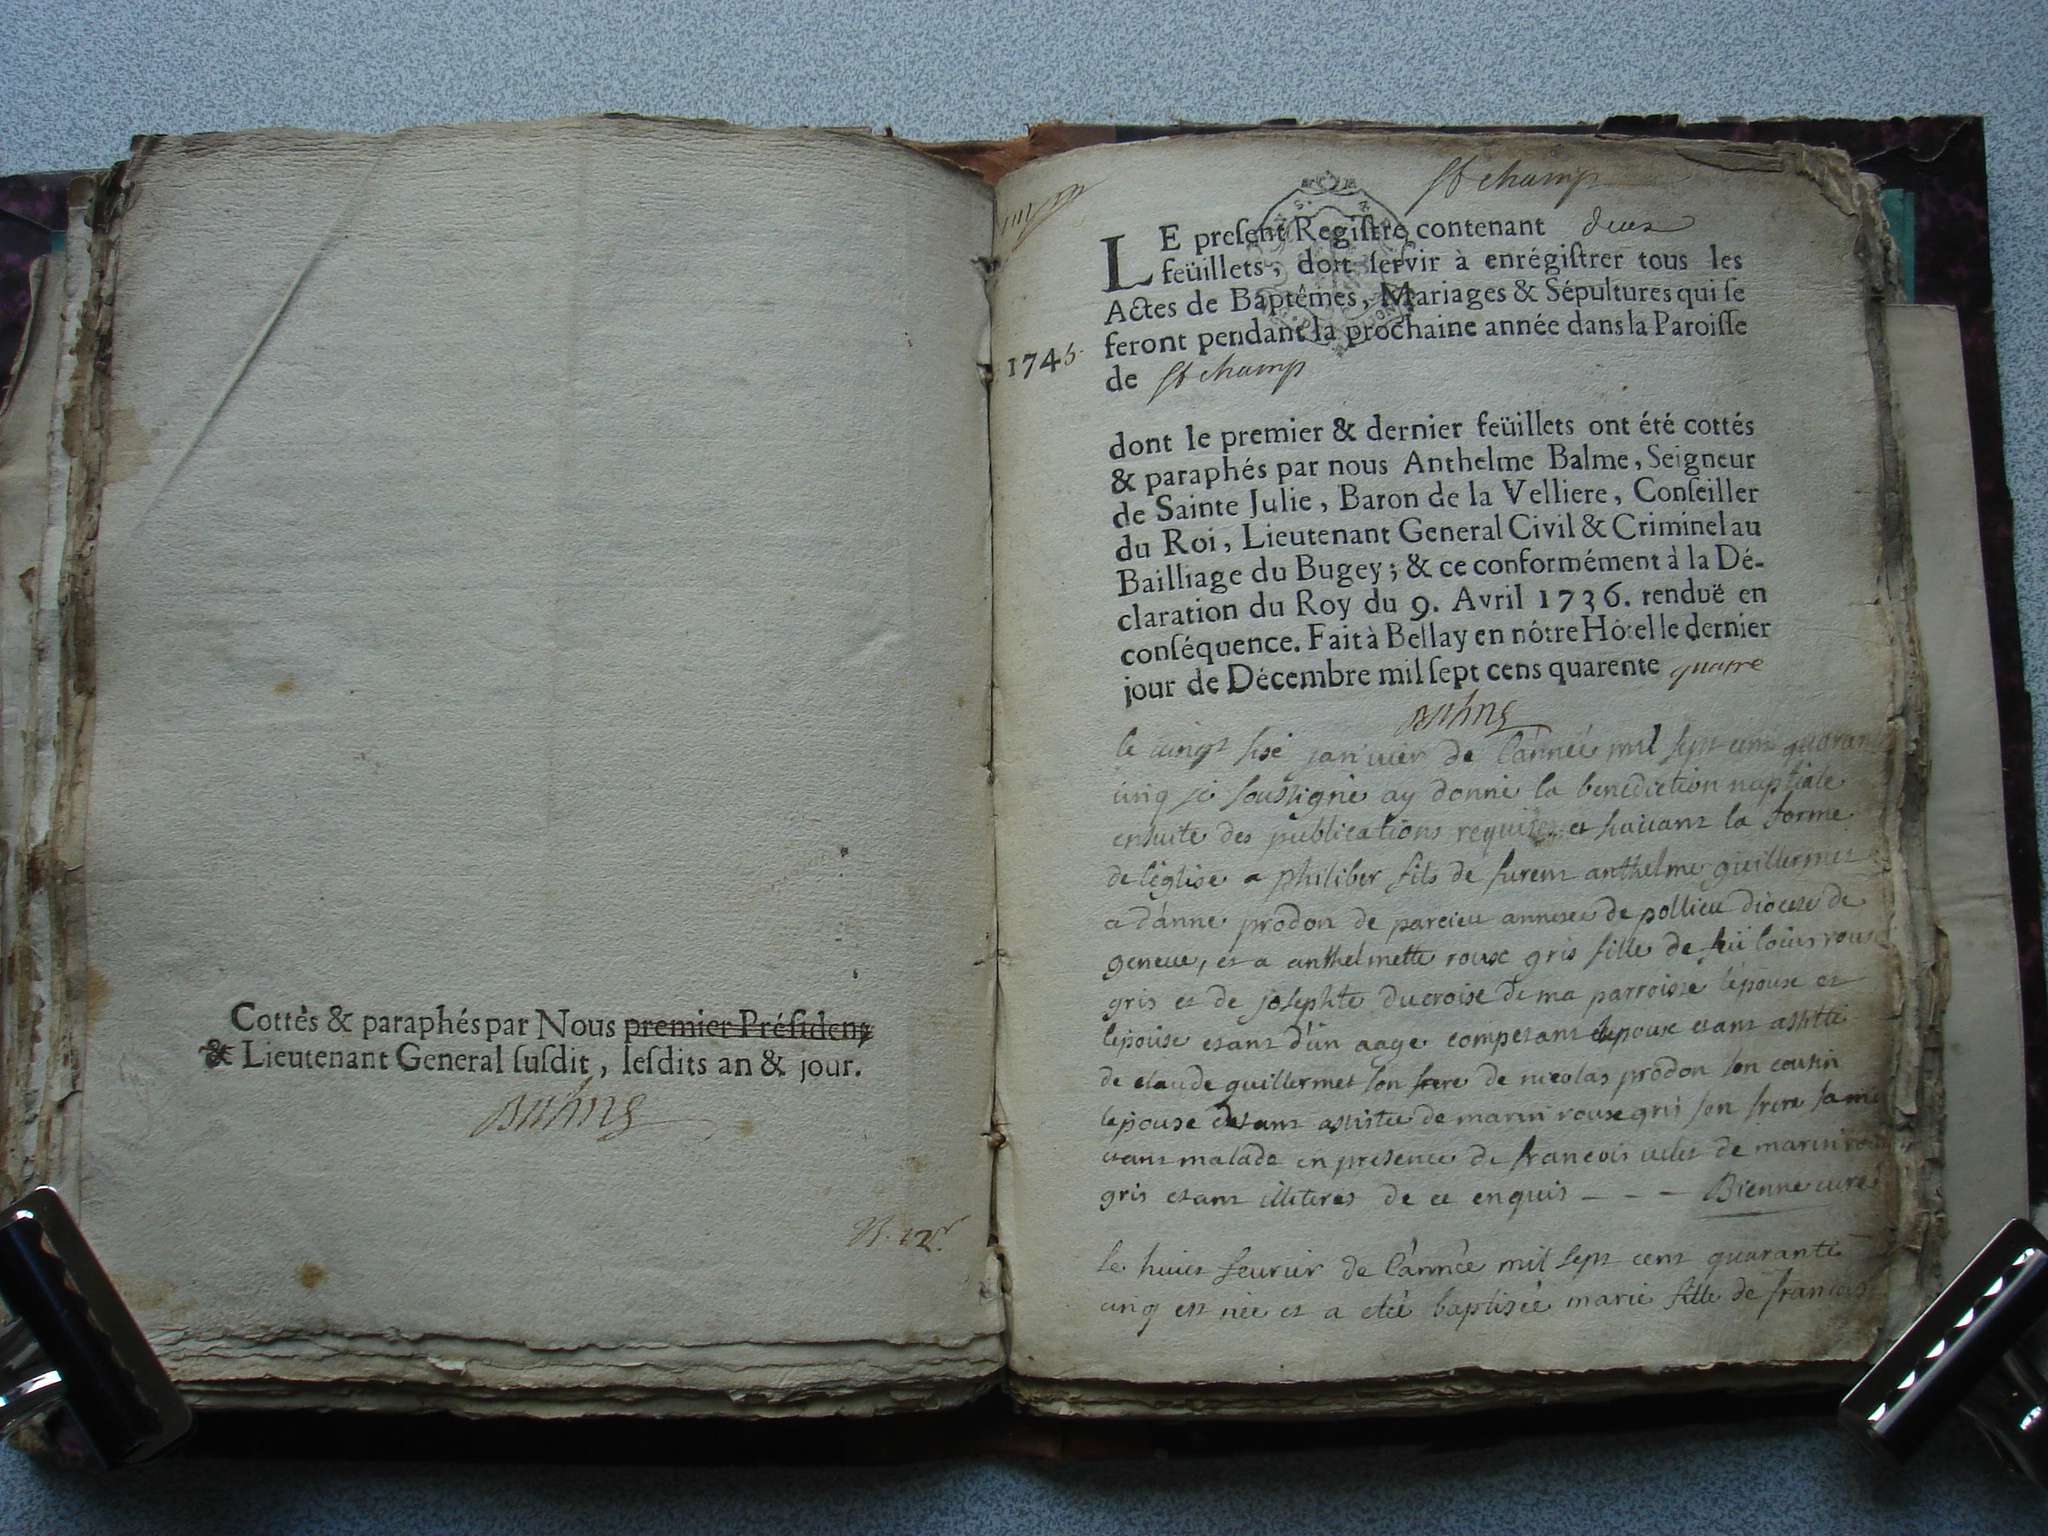 Cottès & paraphés par Nous premier Président
& Lieutenant General susdit, lesdits an & jour.
Balme
St champ
LE present Registre contenant deux
feüillets, doit servir à enrégistrer tous les
Actes de Baptêmes, Mariages & Sépultures qui se
feront pendant la prochaine année dans la Paroisse
1745
de St champ
dont le premier & dernier feüillets ont été cottés
& paraphés par nous Anthelme Balme, Seigneur
de Sainte Julie, Baron de la Velliere, Conseiller
du Roi, Lieutenant General Civil & Criminel au
Bailliage du Bugey; & ce conformément à la Dé-
claration du Roy du 9. Avril 1736. renduë en
conséquence. Fait à Bellay en nôtre Hôtel le dernier
jour de Décembre mil sept cens quarente quatre
Balme
le vingt sixe janvier de l'année mil sept cent quarante
cinq je soussigné ay donné la benediction nuptiale
ensuite des publications requises et suivant la forme
de l'église a philiber fils de furent anthelme guillermet
a d'anne prodon de parcieu annexe de pollieu diocese de
geneve, et a anthelmette roux gris fille de feu loüis roux
gris et de josephte ducroise de ma parroisse l'epoux et
l'epouse etant d'un aage competant lepoux etant assisté
de claude guillermet son frere de nicolas prodon son cousin
lepouse etant assistée de marin roux gris son frere sa mere
etant malade en presence de francois de marin roux
gris etant illiteres de ce enquis - - - Bienne curé
le huict fevrier de l'année mil sept cent quarante
cinq est née et a eteé baptisée marie fille de francois